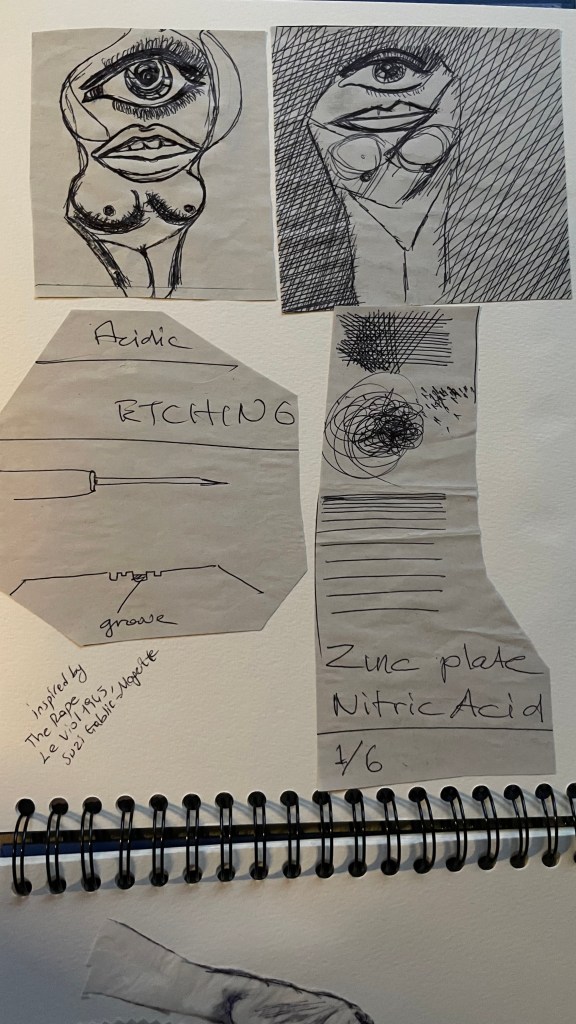 Acidic
ETCHING
groove
inspired by
The Rape
Le Viol 1945,
Suzi Gablic-Magritte
Zinc plate
Nitric Acid
1/6